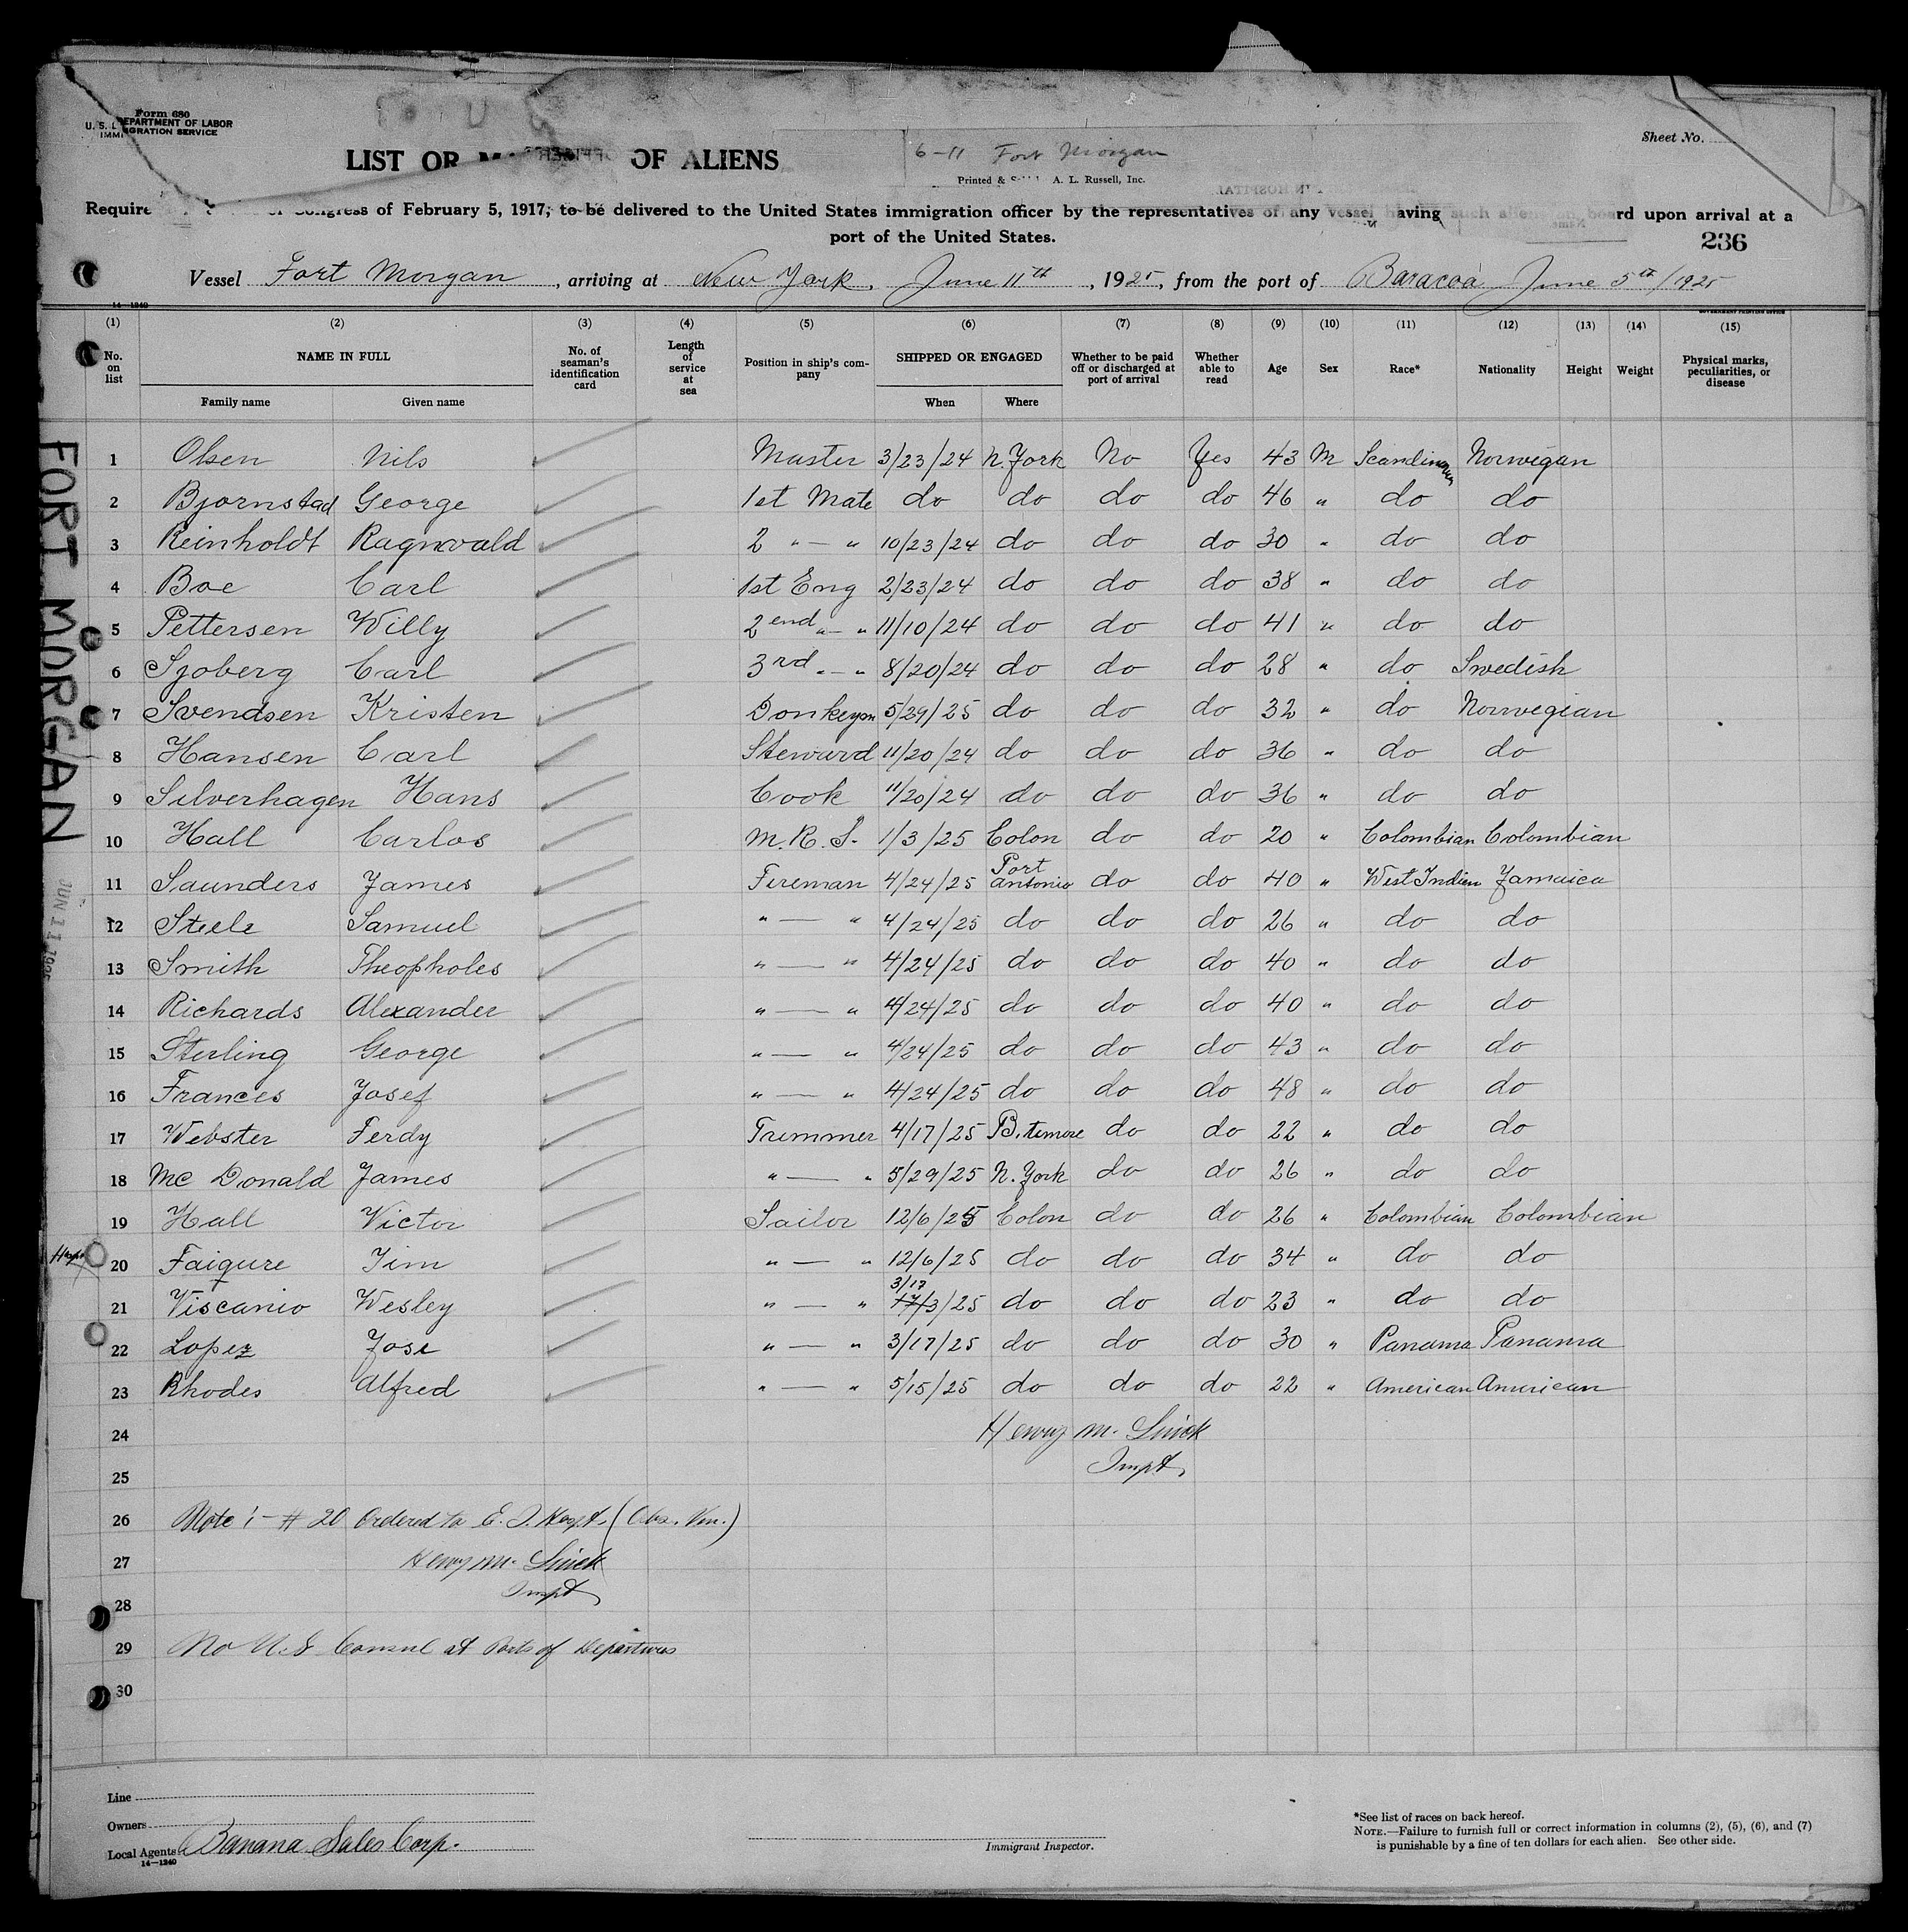 Form 680
U. S. DEPARTMENT OF LABOR
IMMIGRATION SERVICE
Sheet No.
LIST OR OF ALIENS
6-11 Fort Morgan
Printed & A. L. Russell, Inc.
Require Congress of February 5, 1917, to be delivered to the United States immigration officer by the representatives of any vessel having such aliens on board upon arrival at a
port of the United States.
236
Vessel Fort Morgan, arriving at New York, June 11th, 1925, from the port of Baracoa June 5th/1925
14-1240
GOVERNMENT PRINTING OFFICE
(1) (2) (3) (4) (5) (6) (7) (8) (9) (10) (11) (12) (13) (14) (15)
No. on list NAME IN FULL No. of seaman's identification card Length of service at sea Position in ship's company SHIPPED OR ENGAGED Whether to be paid off or discharged at port of arrival Whether able to read Age Sex Race* Nationality Height Weight Physical marks, peculiarities, or disease
Family name Given name When Where
1 Olsen Nils Master 3/23/24 N. York No Yes 43 M Scandinavian Norwegan
2 Bjornstad George 1st Mate do do do do 46 " do do
3 Reinholdt Ragnvald 2 " — " 10/23/24 do do do 30 " do do
4 Boe Carl 1st Eng 2/23/24 do do do 38 " do do
5 Pettersen Willy 2end " — " 11/10/24 do do do 41 " do do
6 Sjoberg Carl 3rd " — " 8/20/24 do do do 28 " do Swedish
7 Svendsen Kristen Donkeym 5/29/25 do do do 32 " do Norwegian
8 Hansen Carl Steward 11/20/24 do do do 36 " do do
9 Silverhagen Hans Cook 11/20/24 do do do 36 " do do
10 Hall Carlos M. R. S. 1/3/25 Colon do do 20 " Colombian Colombian
11 Saunders James Fireman 4/24/25 Port Antonio do do 40 " West Indien Jamaica
12 Steele Samuel " — " 4/24/25 do do do 26 " do do
13 Smith Theopholes " — " 4/24/25 do do do 40 " do do
14 Richards Alexander " — " 4/24/25 do do do 40 " do do
15 Sterling George " — " 4/24/25 do do do 43 " do do
16 Frances Josef " — " 4/24/25 do do do 48 " do do
17 Webster Ferdy Trimmer 4/17/25 B.timore do do 22 " do do
18 Mc Donald James " — " 5/29/25 N. York do do 26 " do do
19 Hall Victor Sailor 12/6/25 Colon do do 26 " Colombian Colombian
Hospt 20 Faigure Jim " — " 12/6/25 do do do 34 " do do
3/17
21 Viscanio Wesley " — " 17/3/25 do do do 23 " do do
22 Lopez Jose " — " 3/17/25 do do do 30 " Panama Panama
23 Rhodes Alfred " — " 5/15/25 do do do 22 " American American
24 Henry M.
25 Inspt.
26 Note! - # 20 Ordered to E. I. Hospt. (Obs. Ven.)
27 Henry M.
Inspt
28
29 No U.S Consul at Ports of Departures
30
FORT MORGAN
JUN 11 1925
Line
Owners
Local Agents Banana Sales Corp.
14-1240
Immigrant Inspector.
*See list of races on back hereof.
NOTE.—Failure to furnish full or correct information in columns (2), (5), (6), and (7)
is punishable by a fine of ten dollars for each alien. See other side.